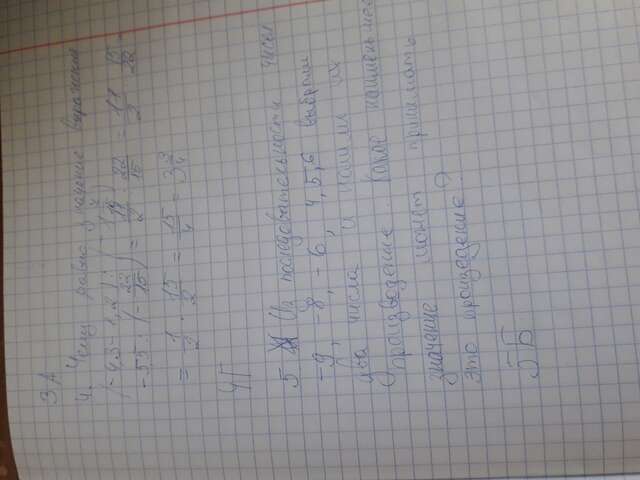 3А
4. Чему равно значение выражения
(-4,3-1,2) : (-
-5,5 : (-22/15) = 11/2 · 22/15 = 11/2 · 15/22 =
= 1/2 · 15/2 = 15/4 = 3 3/4
4Г
5 Из последовательности чисел
-9, -8, -6, 4, 5, 6 выбрали
два числа и нашли их
произведение. Какое наименьшее
значение может принимать
это произведение?
5Б